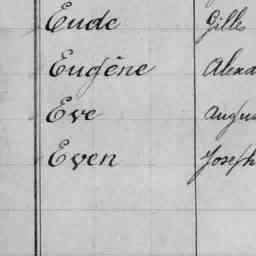 Eude Gilles
Eugène Alexa
Eve Augus
Even Joseph